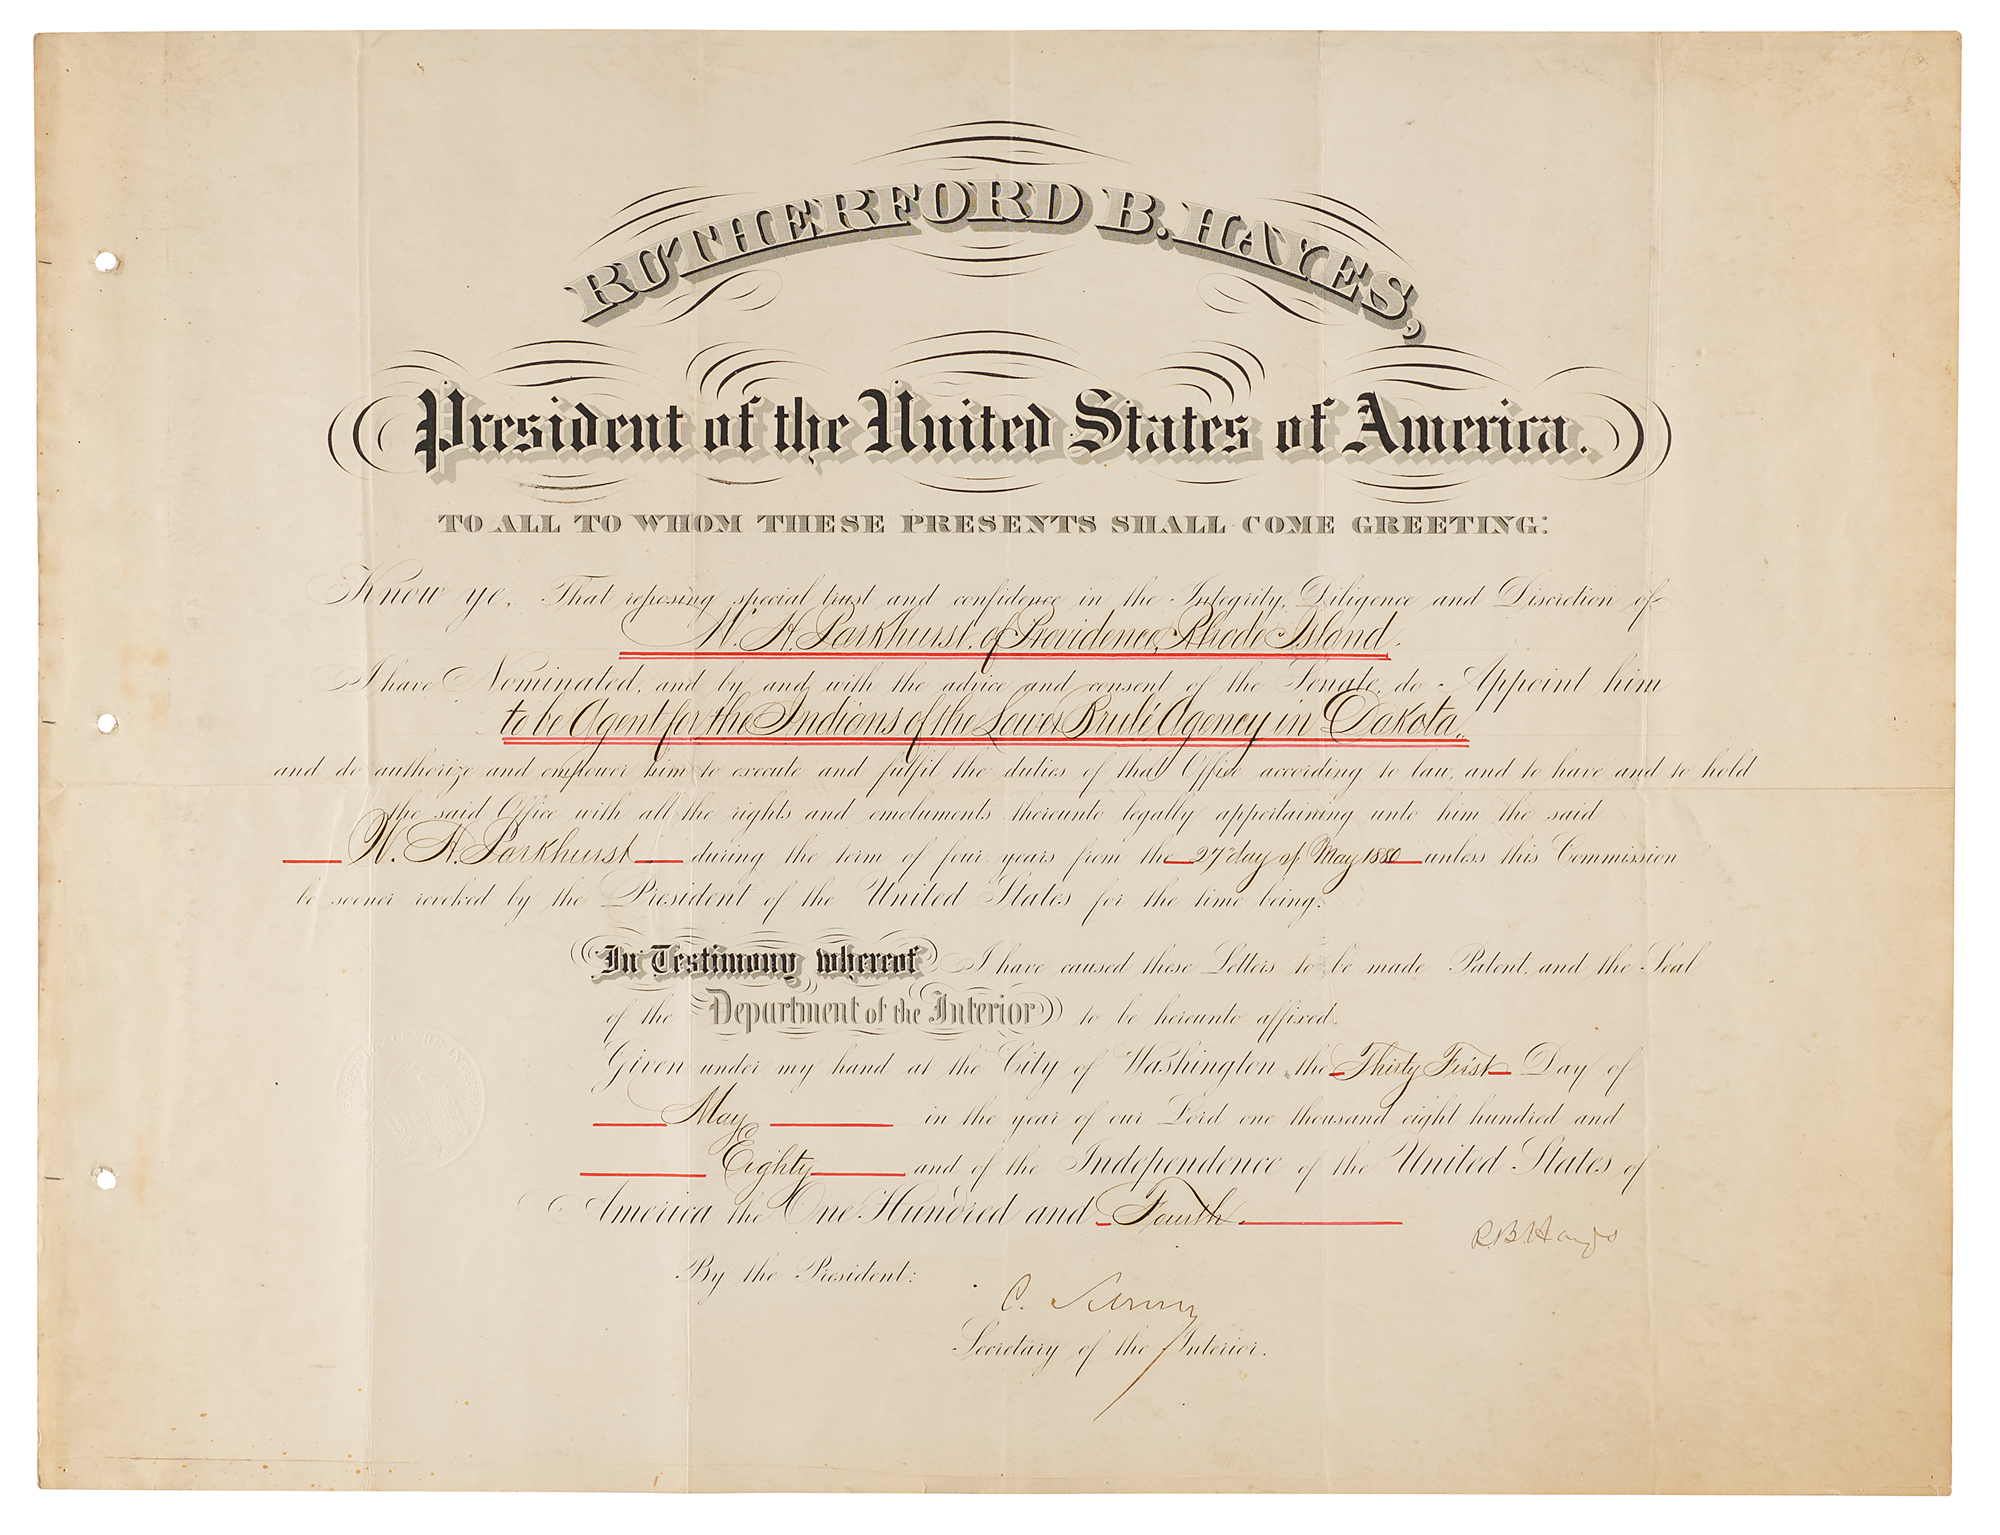 RUTHERFORD B. HAYES,
President of the United States of America.
TO ALL TO WHOM THESE PRESENTS SHALL COME GREETING:
Know ye, That reposing special trust and confidence in the Integrity, Diligence and Discretion of
W. H. Parkhurst, of Providence, Rhode Island.
I have Nominated, and by and with the advice and consent of the Senate, do Appoint him
to be Agent for the Indians of the Lower Brulé Agency in Dakota.
and do authorize and empower him to execute and fulfil the duties of that Office according to law, and to have and to hold
the said Office with all the rights and emoluments thereunto legally appertaining unto him the said
W. H. Parkhurst during the term of four years from the 27 day of May 1880 unless this Commission
be sooner revoked by the President of the United States for the time being.
In Testimony whereof I have caused these Letters to be made Patent, and the Seal
of the Department of the Interior to be hereunto affixed.
Given under my hand at the City of Washington, the Thirty First Day of
May in the year of our Lord one thousand eight hundred and
Eighty and of the Independence of the United States of
America the One Hundred and Fourth.
R.B. Hayes
By the President:
C. Schurz
Secretary of the Interior.